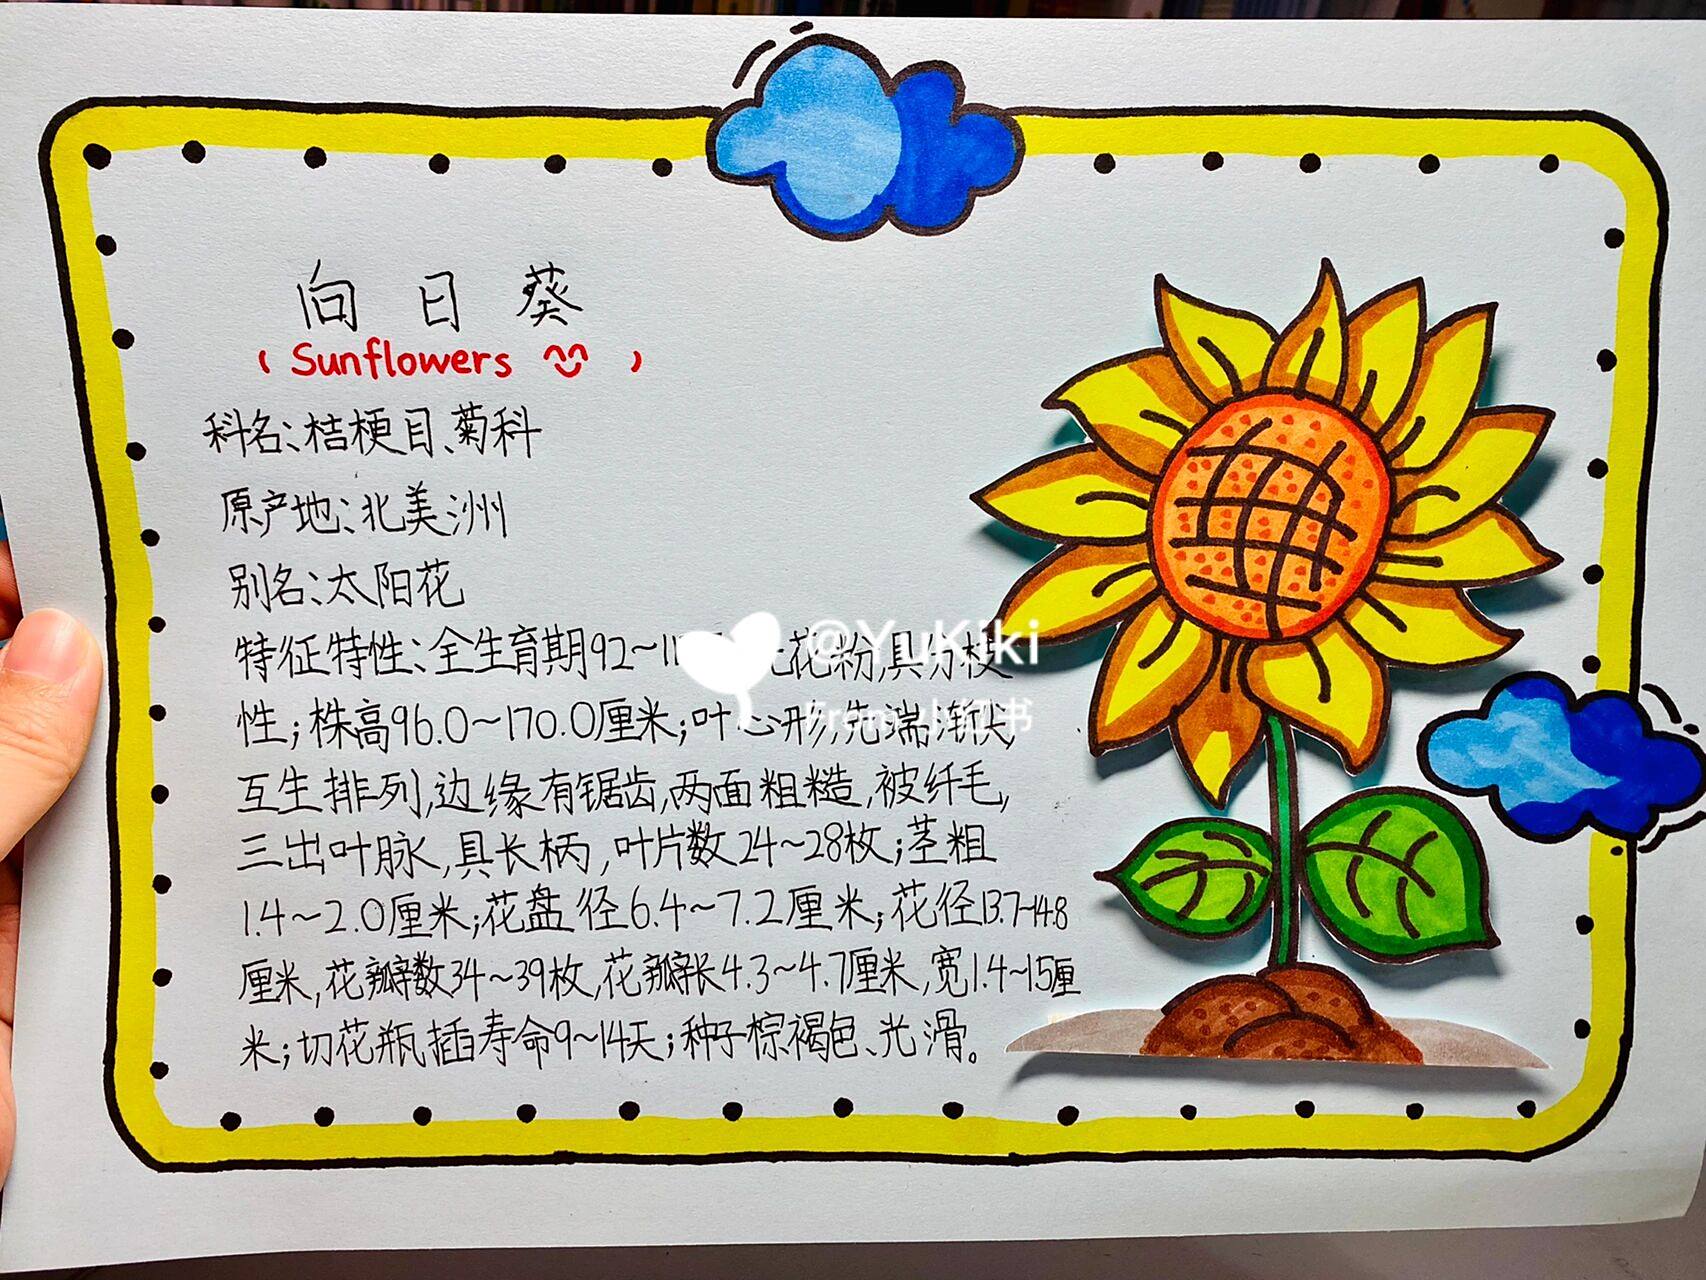 向日葵
（Sunflowers）
科名：桔梗目、菊科
原产地：北美洲
别名：太阳花
特征特性：全生育期92~11 花粉，具分枝
性；株高96.0~170.0厘米；叶心形，先端渐尖，
互生排列，边缘有锯齿，两面粗糙，被纤毛，
三出叶脉，具长柄，叶片数24~28枚；茎粗
1.4~2.0厘米；花盘径6.4~7.2厘米；花径13.7-14.8
厘米，花瓣数34~39枚，花瓣长4.3~4.7厘米，宽1.4~1.5厘
米；切花瓶插寿命9~14天；种子棕褐色、光滑。
@YuKiki
From 小红书